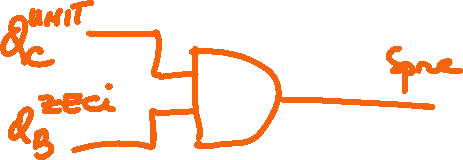 Q_C^UNIT
Q_B^ZECi
Spre